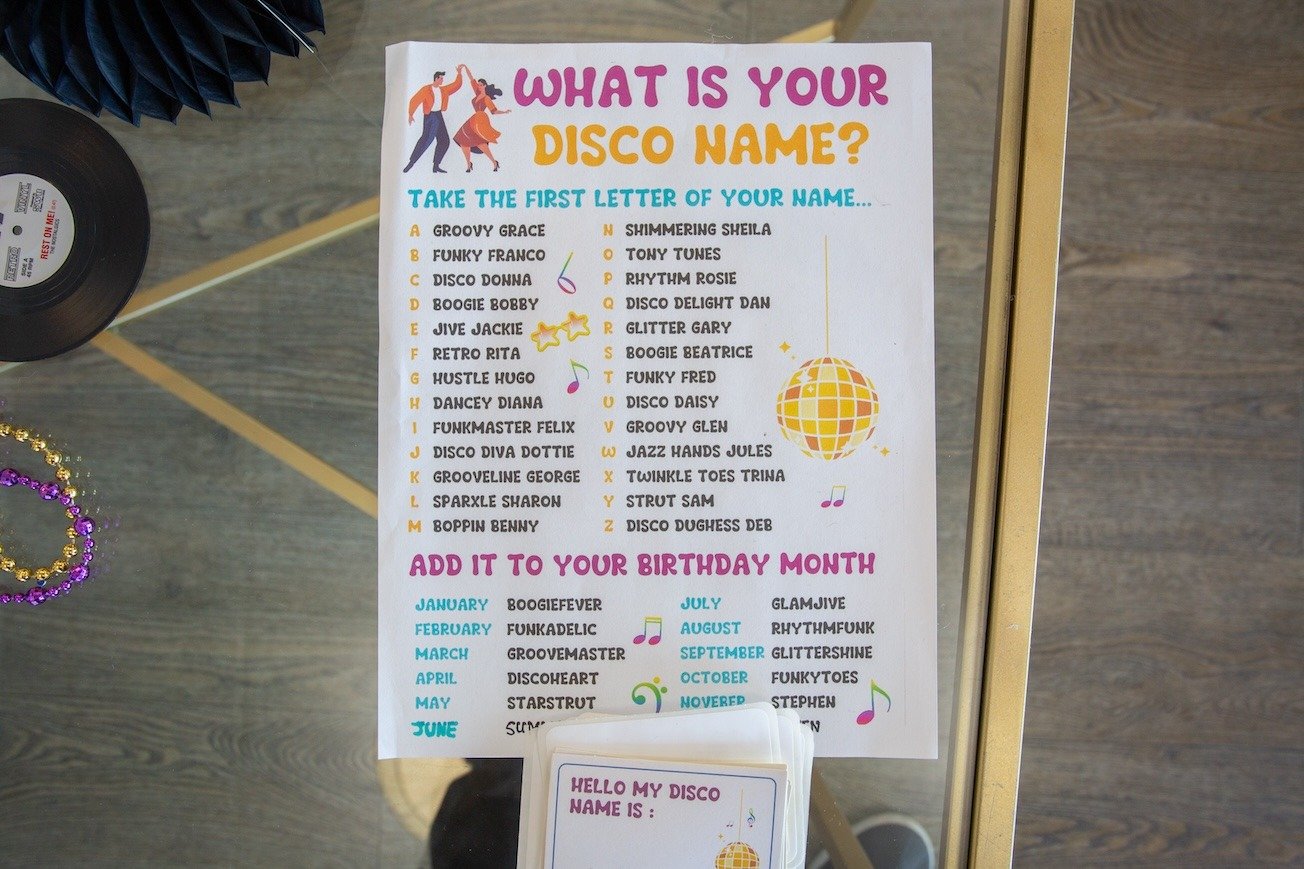 WHAT IS YOUR
DISCO NAME?
TAKE THE FIRST LETTER OF YOUR NAME...
A GROOVY GRACE
B FUNKY FRANCO
C DISCO DONNA
D BOOGIE BOBBY
E JIVE JACKIE
F RETRO RITA
G HUSTLE HUGO
H DANCEY DIANA
I FUNKMASTER FELIX
J DISCO DIVA DOTTIE
K GROOVELINE GEORGE
L SPARXLE SHARON
M BOPPIN BENNY
N SHIMMERING SHEILA
O TONY TUNES
P RHYTHM ROSIE
Q DISCO DELIGHT DAN
R GLITTER GARY
S BOOGIE BEATRICE
T FUNKY FRED
U DISCO DAISY
V GROOVY GLEN
W JAZZ HANDS JULES
X TWINKLE TOES TRINA
Y STRUT SAM
Z DISCO DUGHESS DEB
ADD IT TO YOUR BIRTHDAY MONTH
JANUARY BOOGIEFEVER
FEBRUARY FUNKADELIC
MARCH GROOVEMASTER
APRIL DISCOHEART
MAY STARSTRUT
JUNE
JULY GLAMJIVE
AUGUST RHYTHMFUNK
SEPTEMBER GLITTERSHINE
OCTOBER FUNKYTOES
NOVEBER STEPHEN
HELLO MY DISCO
NAME IS :
RETRO
VINYL
REST ON ME!
THE NOSTALGICS
SIDE A
45 RPM